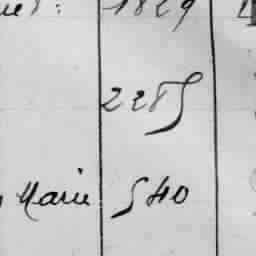 1829
2285
Marie 540